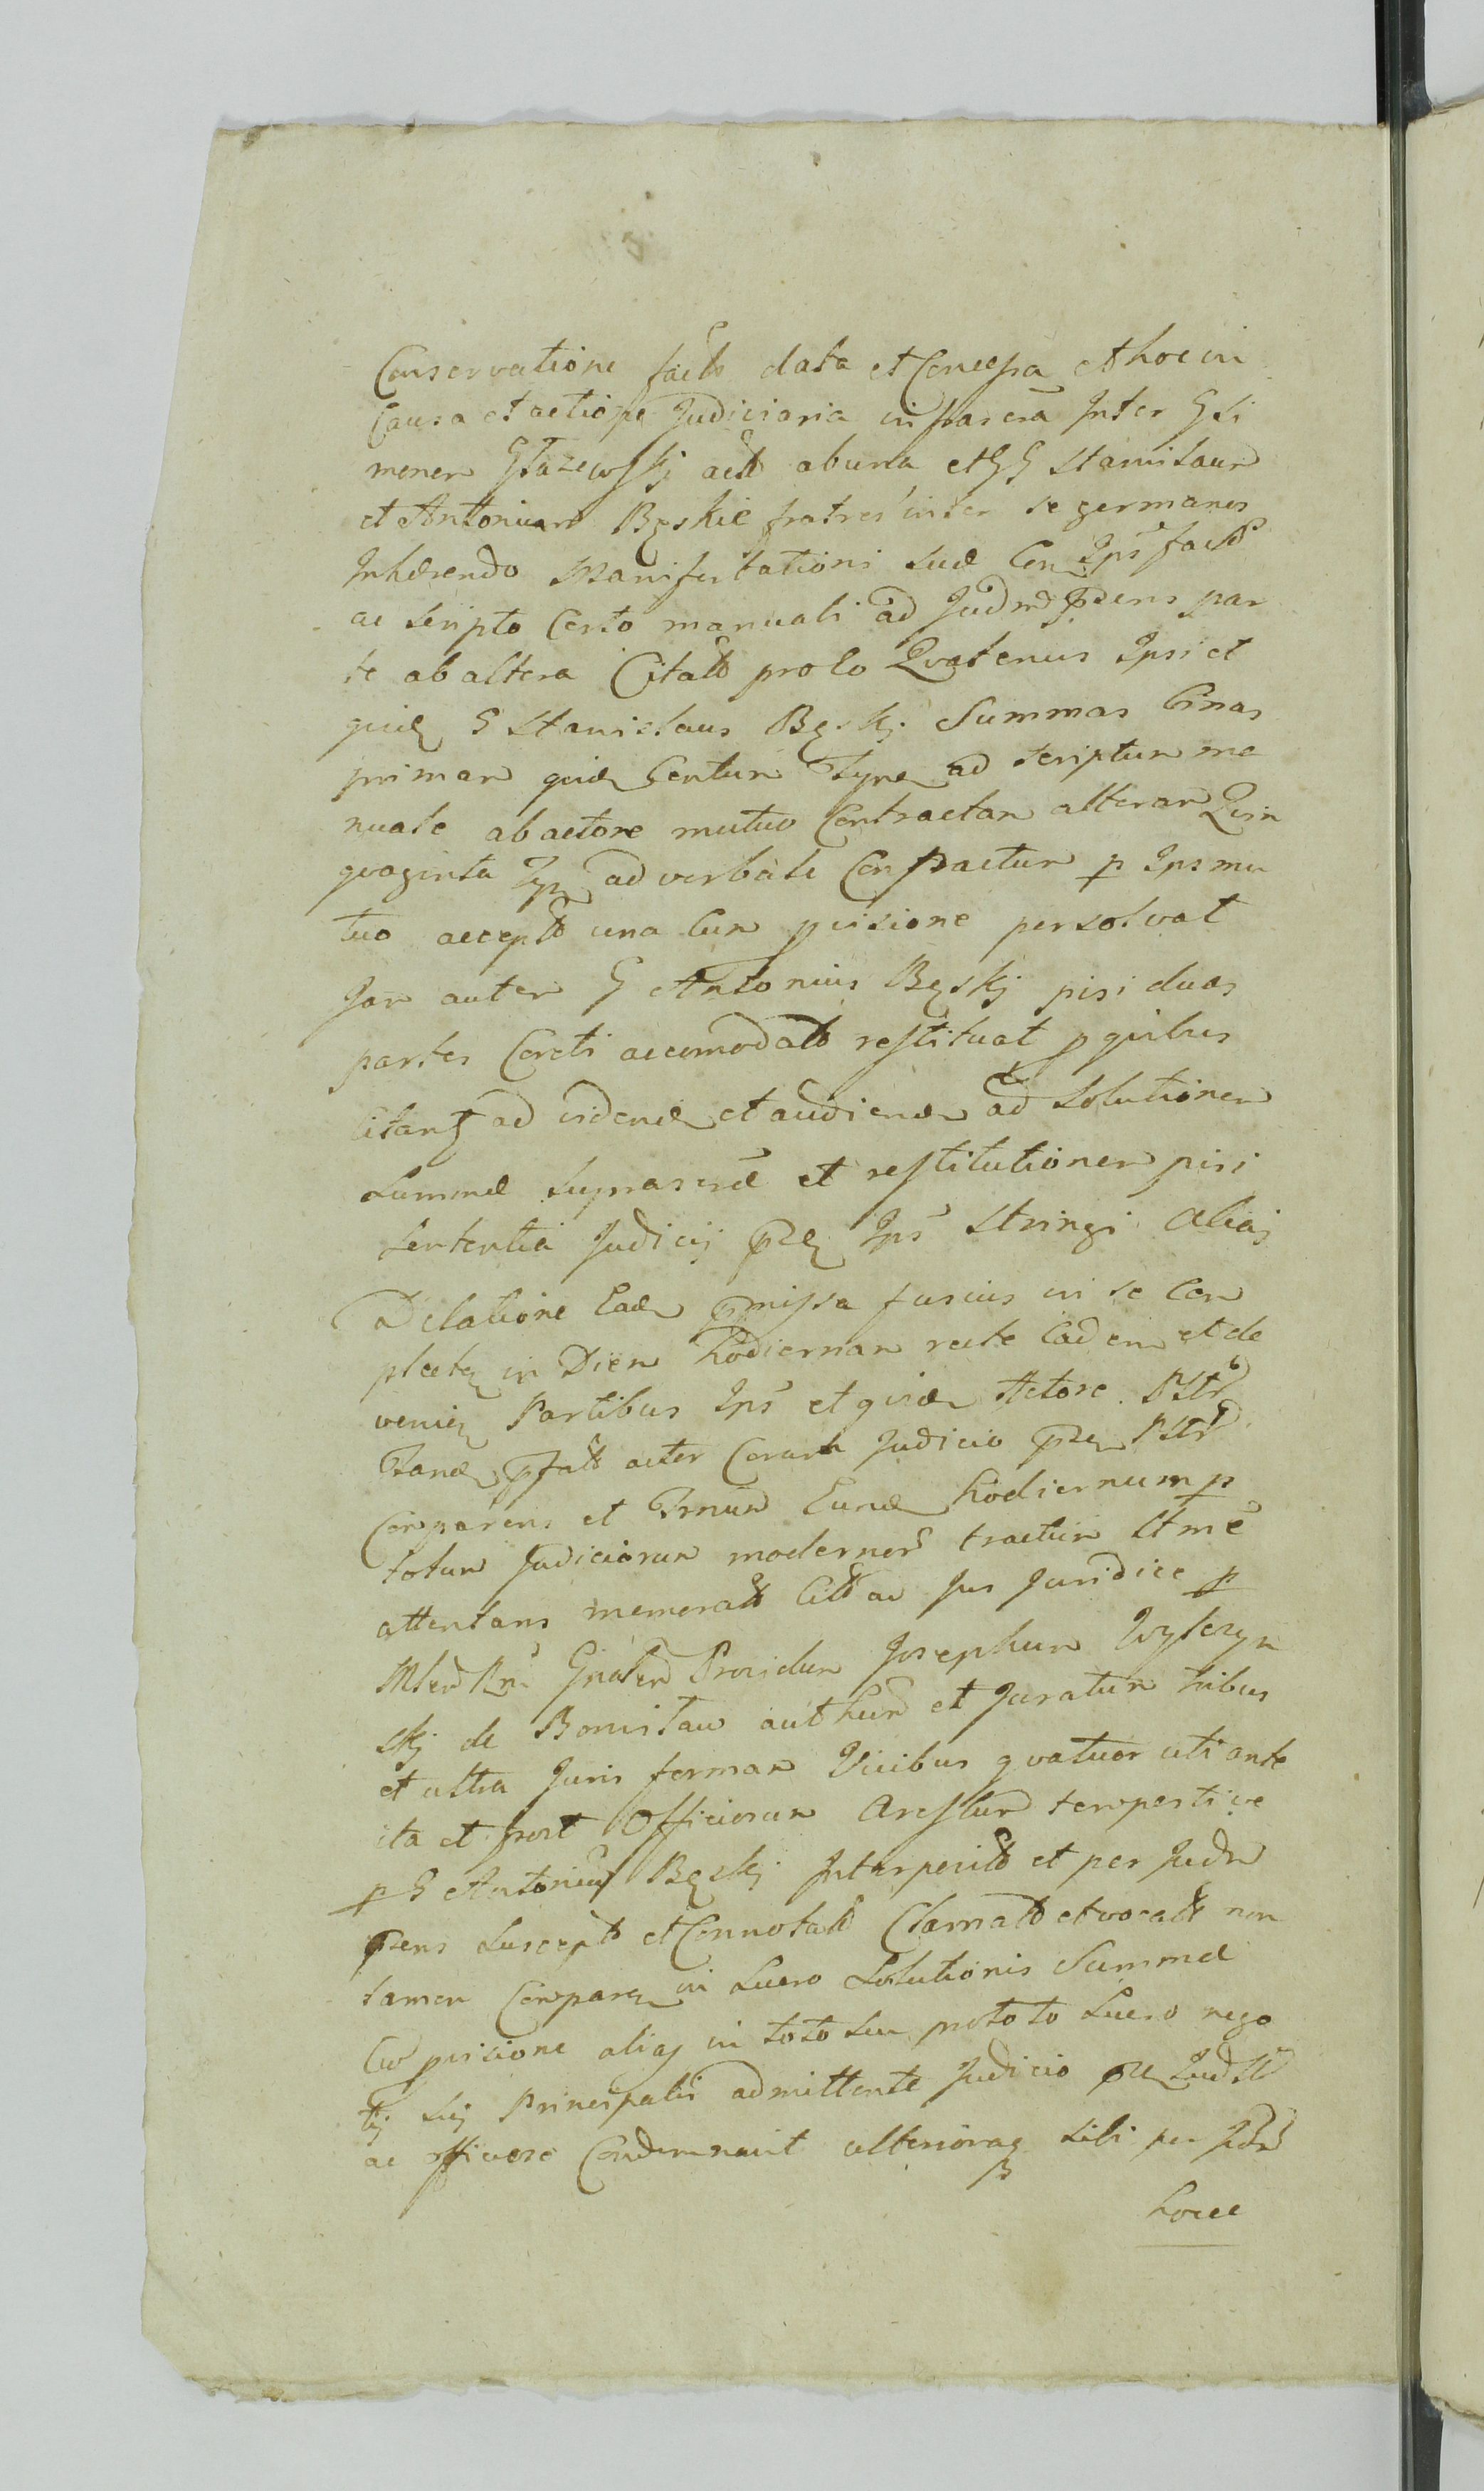 Conservatione factt data et Concessa et hoc in
Causa et actione Judiciaria infrascra Inter G Si
monem Głazewskj actt ab una et GG Stanislaum
et Antonium Bęskie fratres inter se germanos
Inhærendo Manifestationi suæ Con Ips fact
ac scripto Certo manuali ad Judm prdens par
te ab altera Citatt pro eo Quatenus Ipsi et
quid G Stanislaus Bęskj Summas binas
primam quid Centum Tynf ad scriptum ma
nuale ab actore mutuo Contractam alteram Quin
quaginta Tynf ad verbale Contractum p Ips mu
tuo accept una Cum pvisione persolvat
Jam autem G Antonius Bęskj pisi duas
partes Coreti accomodatt restituat p quibus
Citantr ad videnđ et audiendum ad Solutionem
Summæ suprascræ et restitutionem pisi
Sententia Judicij prñ Ips stringi alias
Delatione Eadem pmissa fusius in se Con
plectñ in Diem hodiernam recte Cadeñ et de
venieñ Partibus Ips et quidem Actore
Tandem pfatt actor Coram Judicio prñ
Comparens et Trnum Eund hodiernum p
totum Judiciorum modernor tractum
attentans memoratt Citt ac Jus Juridice p
Mlem Rni Gnalem Providum Josephum Wyszyn
skj de Bonislaw authum et Juratum tribus
et ultra Juris formam Vicibus quatuor uti ante
ita et post Officiosum Arestum tempestive
p G Antonium Bęskj Interposit et per Judm
prens suscept et Connotatt Clamatt et vocatt non
tamen Compareñ in Lucro Solutionis Summæ
Cum pvisione alias in toto seu pro toto Lucro nego
tij sui Principalis admittente Judicio prñ
ac officiose Condemnavit ulterioraq sibi per
hocce